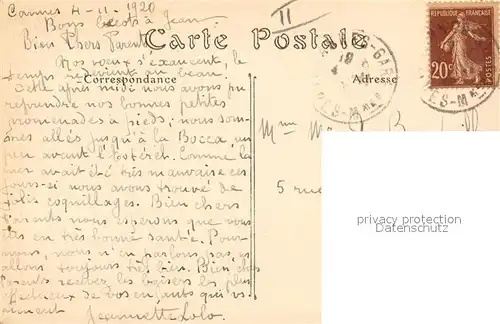 Cannes 4-11-1920
Bons baisers à Jean
Bien Chers Parents
Carte Postale
Correspondance
Adresse
Nos voeux s'exaucent, le
temps redevient au beau,
Cette après midi nous avons pu
reprendre nos bonnes petites
promenades à pieds, nous som-
mes allés jusqu'à la Bocca, un
peu avant l'Estérel. Comme la
mer avait été très mauvaise ces
jours-si nous avons trouvé de
jolis coquillages. Bien chers
Parents nous espérons que vous
êtes en très bonne santé. Pour
nous, nous n'en parlons pas, ns
allons toujours très bien. Bien chers
Parents recevez les baisers les plus
affectueux de vos enfants qui vs
aiment
Jeannette Lolo.
II
REPUBLIQUE FRANÇAISE
20c
POSTES
GARE
Mme
5 rue
privacy protection
Datenschutz